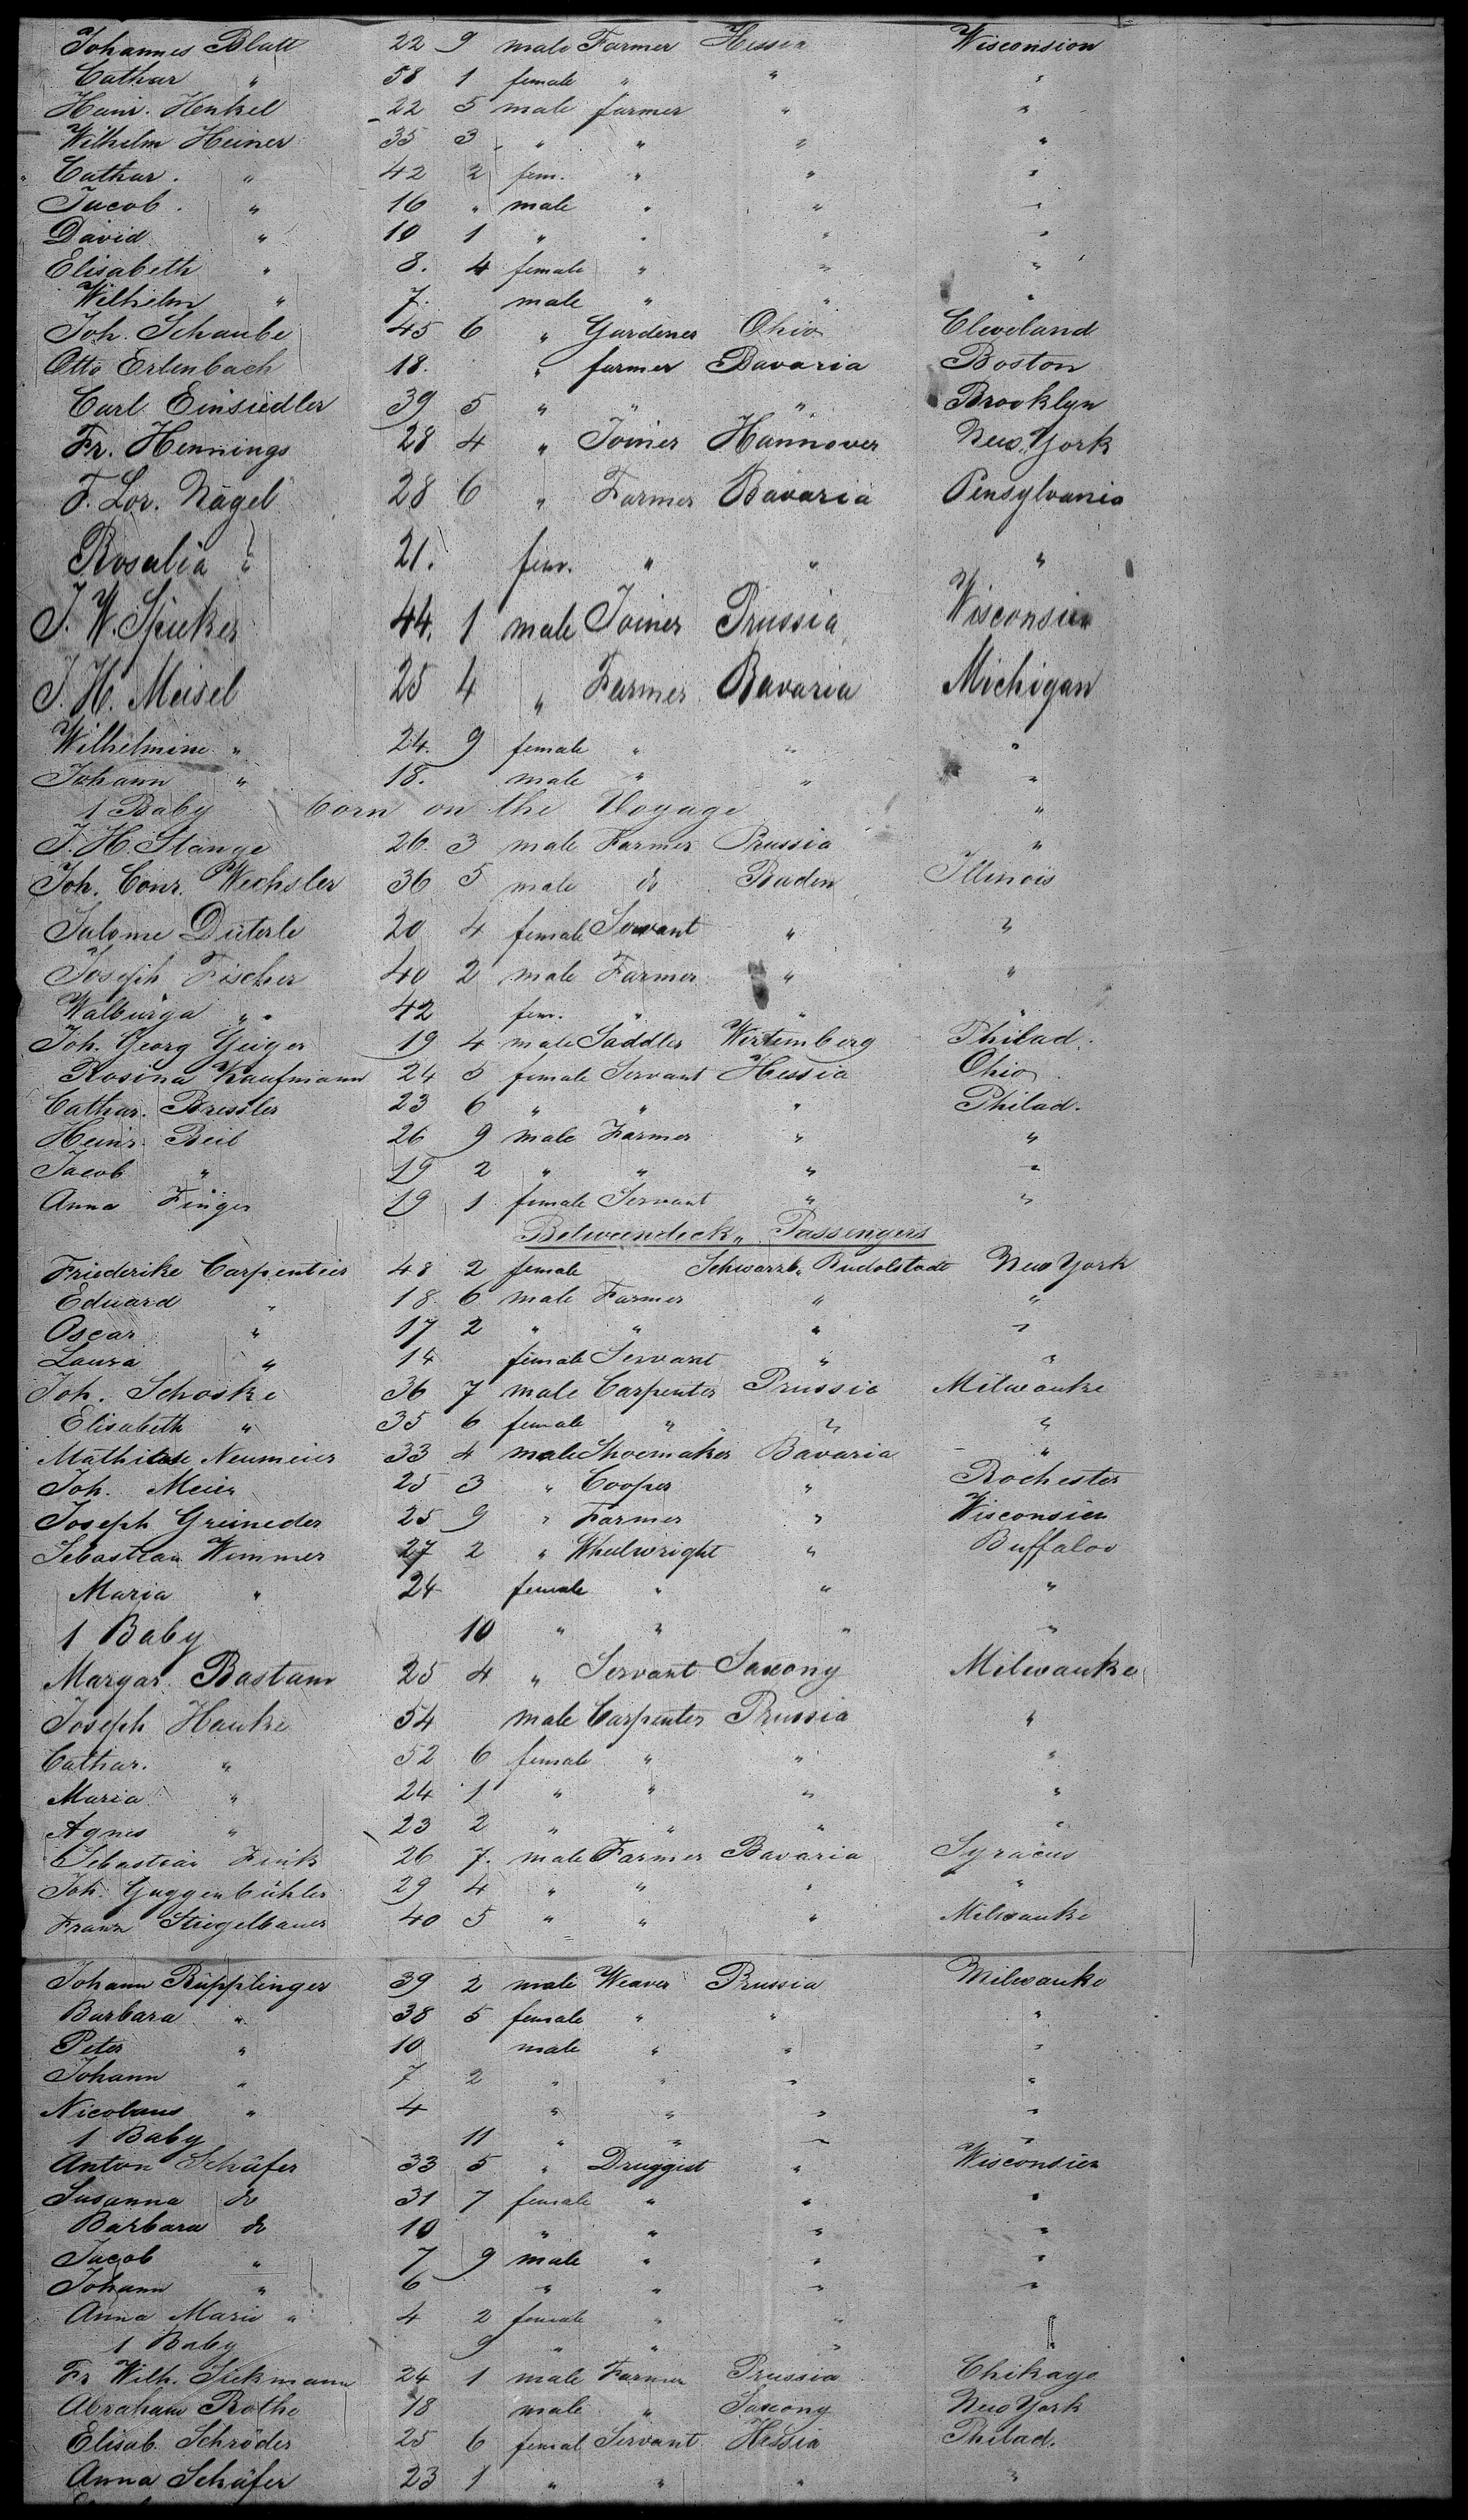 Johannes Blatt 22 9 male Farmer Hessia Wisconsion
Cathar " 58 1 female " " "
Heinr. Henkel 22 5 male farmer " "
Wilhelm Heiner 35 3 " " " "
Cathar. " 42 2 fem. " " "
Jacob. " 16 " male " " "
David " 10 1 " " " "
Elisabeth " 8. 4 female " " "
Wilhelm " 7. male " " "
Joh. Schaube 45 6 " Gardener Ohio Cleveland
Otto Erlenbach 18. " farmer Bavaria Boston
Carl Einsiedler 39 5 " " " Brooklyn
Fr. Hennings 28 4 " Joiner Hannover New York
F. Lor. Nägel 28 6 " Farmer Bavaria Pensylvania
Rosalia " 21. fem. " " "
J. W. Spieker 44. 1 male Joiner Prussia Wisconsin
J. H. Meisel 25 4 " Farmer Bavaria Michigan
Wilhelmine " 24. 9 female " " "
Johann " 18. male " " "
1 Baby born on the Voyage "
J. H. Stange 26. 3 male Farmer Prussia "
Joh. Conr. Wechsler 36 5 male do Baden Illinois
Salome Dieterle 20 4 female Servant " "
Joseph Fischer 40 2 male Farmer " "
Walburga " 42 fem. " " "
Joh. Georg Geiger 19 4 male Saddler Wirtemberg Philad.
Rosina Kaufmann 24 5 female Servant Hessia Ohio
Cathar. Bressler 23 6 " " " Philad.
Heinr. Beil 26 9 male Farmer " "
Jacob " 19 2 " " " "
Anna Finger 19 1 female Servant " "
Betweendeck " Passengers
Friederike Carpentier 48 2 female Schwarzb. Rudolstadt New York
Eduard " 18. 6 male Farmer " "
Oscar " 17 2 " " " "
Laura " 14 female Servant " "
Joh. Schoske 36 7 male Carpenter Prussia Milwauke
Elisabeth " 35 6 female " " "
Mathias Neumeier 33 4 male Shoemaker Bavaria "
Joh. Meier 25 3 " Cooper " Rochester
Joseph Greineder 25 9 " Farmer " Wisconsien
Sebastian Wimmer 27 2 " Wheelwright " Buffaloo
Maria " 24 female " " "
1 Baby 10 " " " "
Margar. Bastam 25 4 " Servant Saxony Milwauke
Joseph Hauke 54 male Carpenter Prussia "
Cathar. " 52 6 female " " "
Maria " 24 1 " " " "
Agnes " 23 2 " " " "
Sebastian Fink 26 7. male Farmer Bavaria Syracus
Joh. Guggenbühler 29 4 " " " "
Franz Stiegelbauer 40 5 " " " Milwauke
Johann Rüpplinger 39 2 male Weaver Prussia Milwauke
Barbara " 38 5 female " " "
Peter " 10 male " " "
Johann " 7 2 " " " "
Nicolaus " 4 " " " "
1 Baby 11 " " " "
Anton Schäfer 33 5 " Druggist " Wisconsien
Susanna do 31 7 female " " "
Barbara do 10 " " " "
Jacob " 7 9 male " " "
Johann " 6 " " " "
Anna Maria " 4 2 female " "
1 Baby 9 " " "
Fr. Wilh. Siekmann 24 1 male Farmer Prussia Chikago
Abraham Rothe 18 male " Saxony New York
Elisab. Schröder 25 6 femal Servant Hessia Philad.
Anna Schäfer 23 1 " " " "